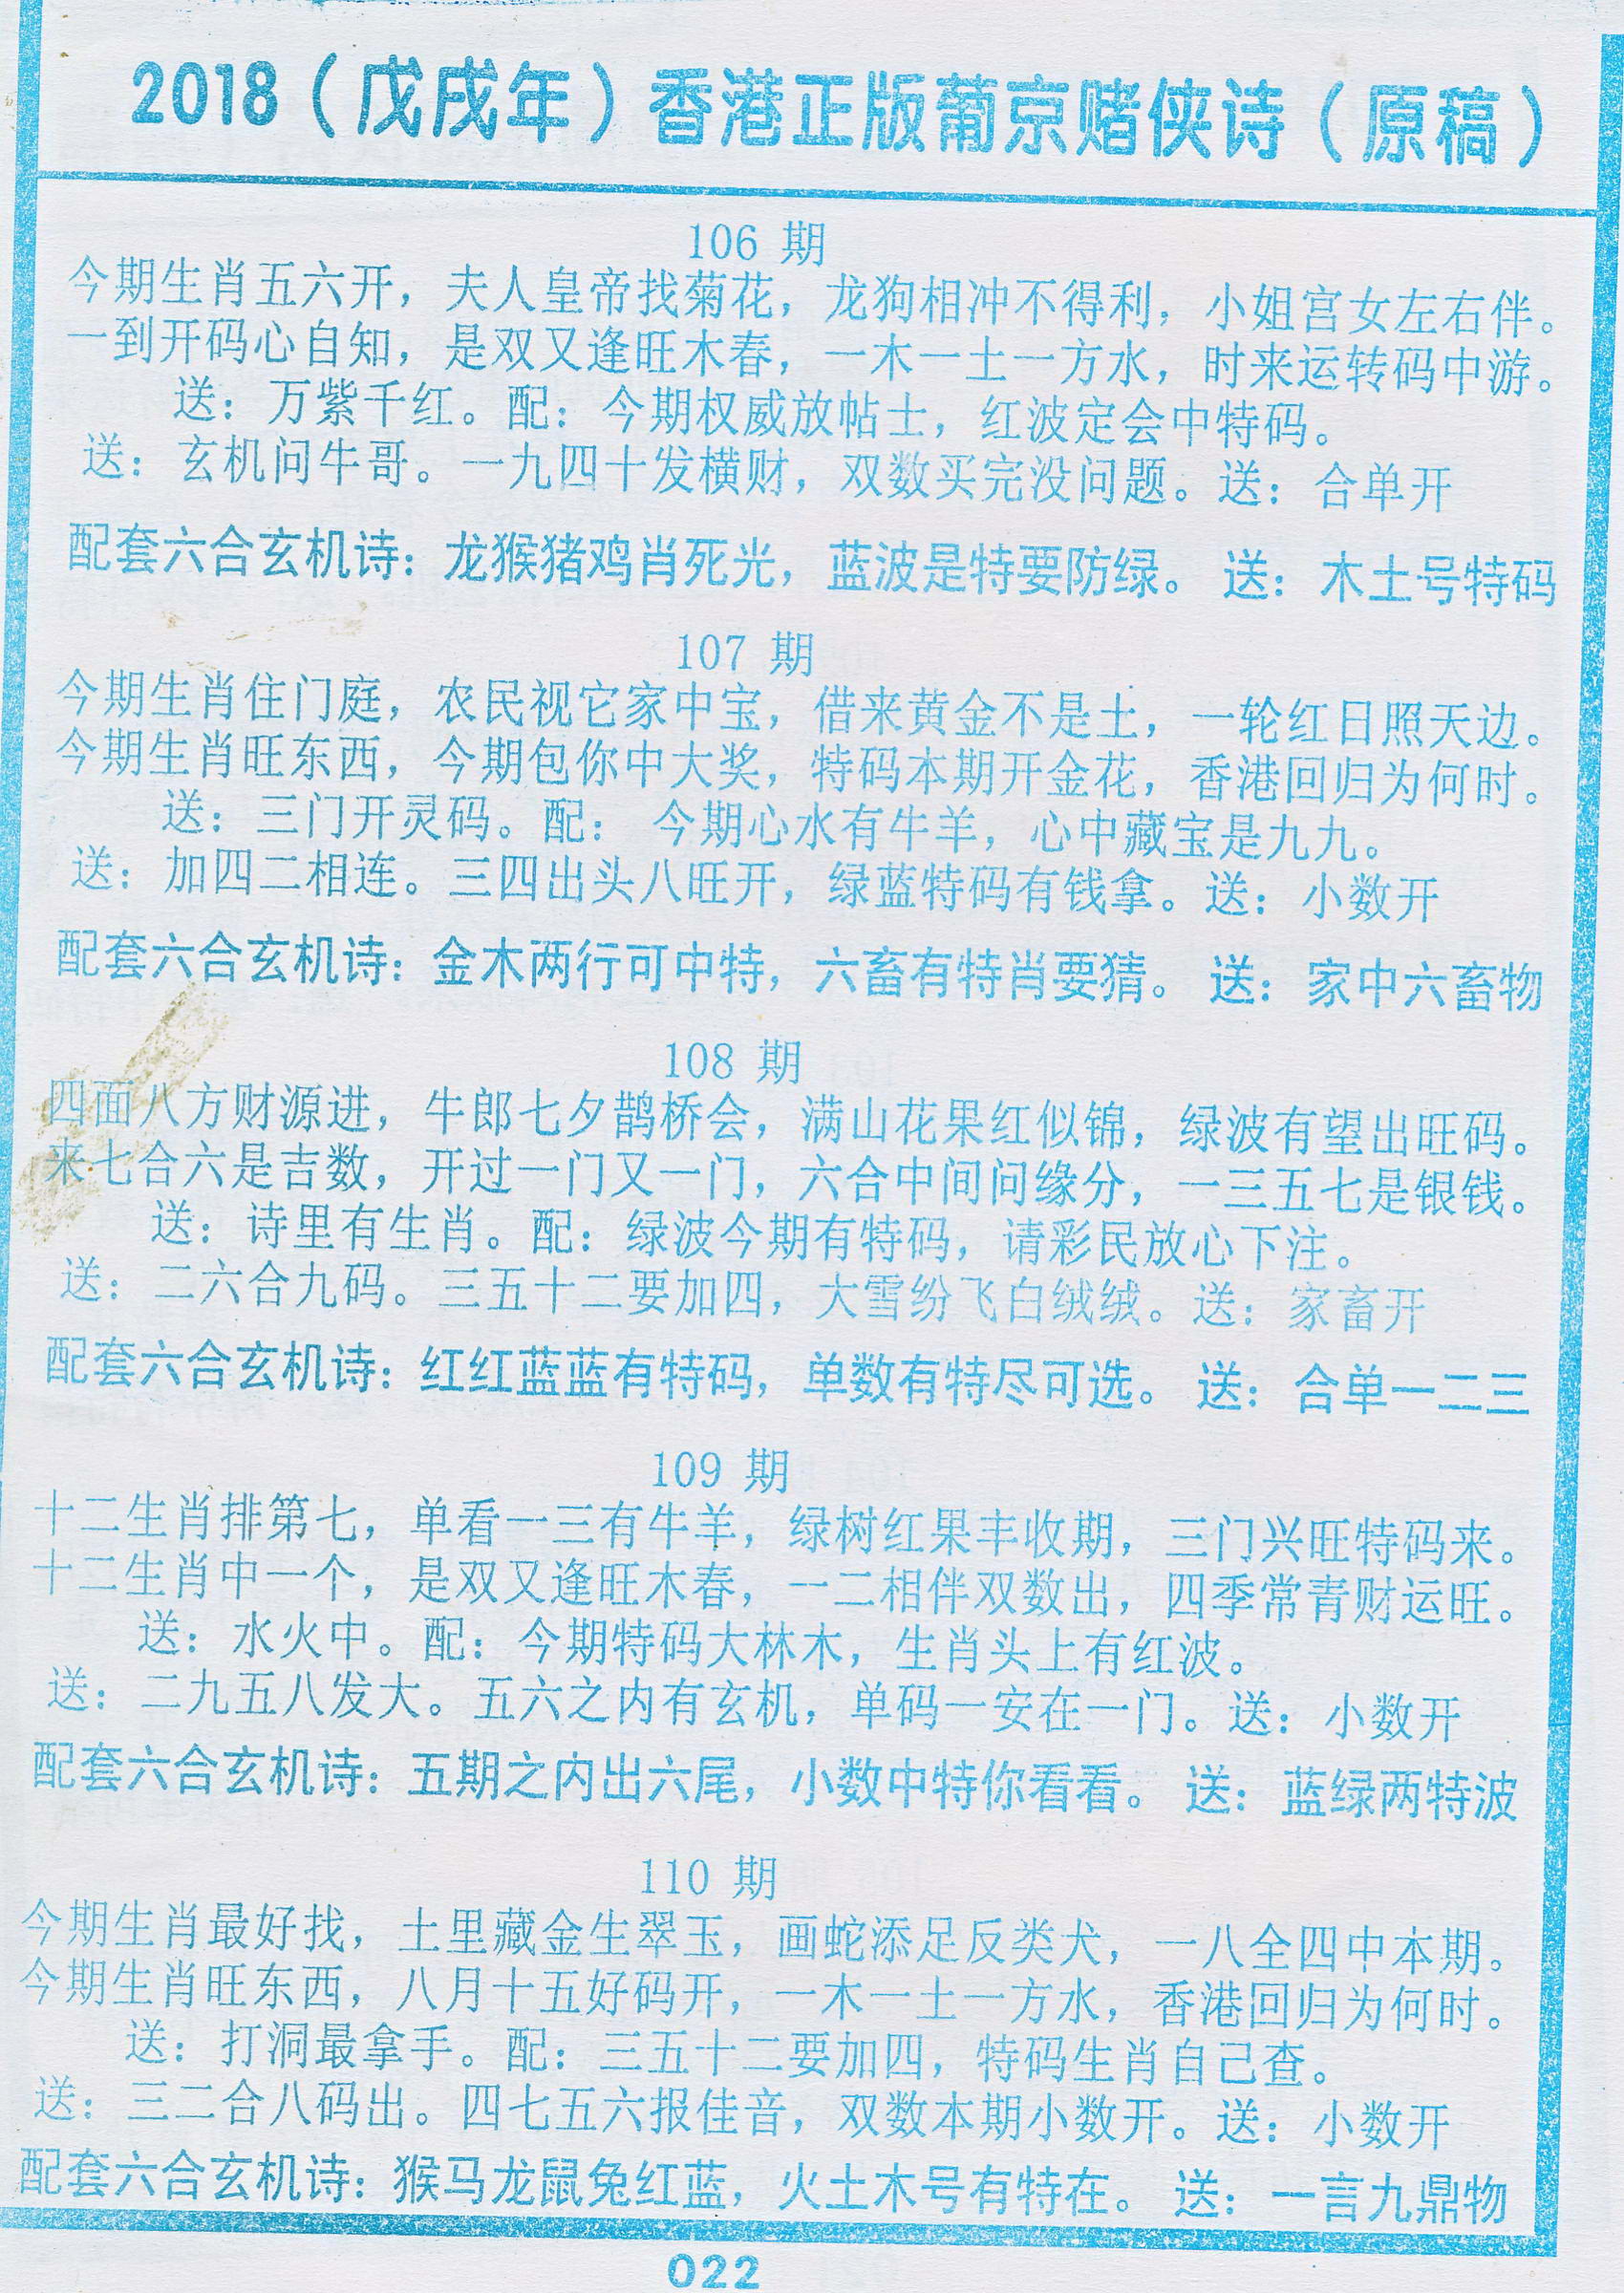 2018（戊戌年）香港正版葡京赌侠诗（原稿）
106 期
今期生肖五六开，夫人皇帝找菊花，龙狗相冲不得利，小姐宫女左右伴。
一到开码心自知，是双又逢旺木春，一木一土一方水，时来运转码中游。
送：万紫千红。配：今期权威放帖士，红波定会中特码。
送：玄机问牛哥。一九四十发横财，双数买完没问题。送：合单开
配套六合玄机诗：龙猴猪鸡肖死光，蓝波是特要防绿。 送：木土号特码
107 期
今期生肖住门庭，农民视它家中宝，借来黄金不是土，一轮红日照天边。
今期生肖旺东西，今期包你中大奖，特码本期开金花，香港回归为何时。
送：三门开灵码。配： 今期心水有牛羊，心中藏宝是九九。
送：加四二相连。三四出头八旺开，绿蓝特码有钱拿。送：小数开
配套六合玄机诗：金木两行可中特，六畜有特肖要猜。 送：家中六畜物
108 期
四面八方财源进，牛郎七夕鹊桥会，满山花果红似锦，绿波有望出旺码。
来七合六是吉数，开过一门又一门，六合中间问缘分，一三五七是银钱。
送：诗里有生肖。配：绿波今期有特码，请彩民放心下注。
送：二六合九码。三五十二要加四，大雪纷飞白绒绒。送：家畜开
配套六合玄机诗：红红蓝蓝有特码，单数有特尽可选。 送：合单一二三
109 期
十二生肖排第七，单看一三有牛羊，绿树红果丰收期，三门兴旺特码来。
十二生肖中一个，是双又逢旺木春，一二相伴双数出，四季常青财运旺。
送：水火中。配：今期特码大林木，生肖头上有红波。
送：二九五八发大。五六之内有玄机，单码一安在一门。送：小数开
配套六合玄机诗：五期之内出六尾，小数中特你看看。 送：蓝绿两特波
110 期
今期生肖最好找，土里藏金生翠玉，画蛇添足反类犬，一八全四中本期。
今期生肖旺东西，八月十五好码开，一木一土一方水，香港回归为何时。
送：打洞最拿手。配：三五十二要加四，特码生肖自己查。
送：三二合八码出。四七五六报佳音，双数本期小数开。送：小数开
配套六合玄机诗：猴马龙鼠兔红蓝，火土木号有特在。 送：一言九鼎物
022